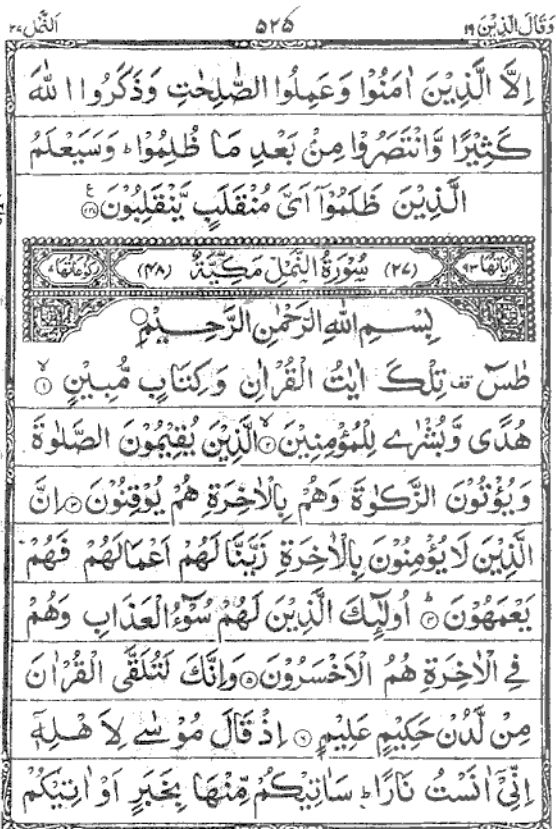 وَقَالَ الَّذِيْنَ ١٩ ٥٢٥ اَلنَّمْل ٢٧
اِلَّا الَّذِيْنَ اٰمَنُوْا وَعَمِلُوا الصّٰلِحٰتِ وَذَكَرُوا اللّٰهَ
كَثِيْرًا وَّانْتَصَرُوْا مِنْۢ بَعْدِ مَا ظُلِمُوْا ؕ وَسَيَعْلَمُ
الَّذِيْنَ ظَلَمُوْۤا اَىَّ مُنْقَلَبٍ يَّنْقَلِبُوْنَ ﴿٢٢٧﴾ ع
اٰيَاتُهَا ٩٣ (٢٧) سُوْرَةُ النَّمْلِ مَكِّيَّةٌ (٤٨) رُكُوْعَاتُهَا ٧
بِسْمِ اللّٰهِ الرَّحْمٰنِ الرَّحِيْمِ
طٰسٓ قف تِلْكَ اٰيٰتُ الْقُرْاٰنِ وَكِتَابٍ مُّبِيْنٍ ﴿١﴾ۙ
هُدًى وَّبُشْرٰى لِلْمُؤْمِنِيْنَ ﴿٢﴾ۙ الَّذِيْنَ يُقِيْمُوْنَ الصَّلٰوةَ
وَيُؤْتُوْنَ الزَّكٰوةَ وَهُمْ بِالْاٰخِرَةِ هُمْ يُوْقِنُوْنَ ﴿٣﴾ اِنَّ
الَّذِيْنَ لَا يُؤْمِنُوْنَ بِالْاٰخِرَةِ زَيَّنَّا لَهُمْ اَعْمَالَهُمْ فَهُمْ
يَعْمَهُوْنَ ﴿٤﴾ؕ اُولٰٓئِكَ الَّذِيْنَ لَهُمْ سُوْٓءُ الْعَذَابِ وَهُمْ
فِى الْاٰخِرَةِ هُمُ الْاَخْسَرُوْنَ ﴿٥﴾ وَاِنَّكَ لَتُلَقَّى الْقُرْاٰنَ
مِنْ لَّدُنْ حَكِيْمٍ عَلِيْمٍ ﴿٦﴾ اِذْ قَالَ مُوْسٰى لِاَهْلِهٖۤ
اِنِّىْۤ اٰنَسْتُ نَارًا ؕ سَاٰتِيْكُمْ مِّنْهَا بِخَبَرٍ اَوْ اٰتِيْكُمْ